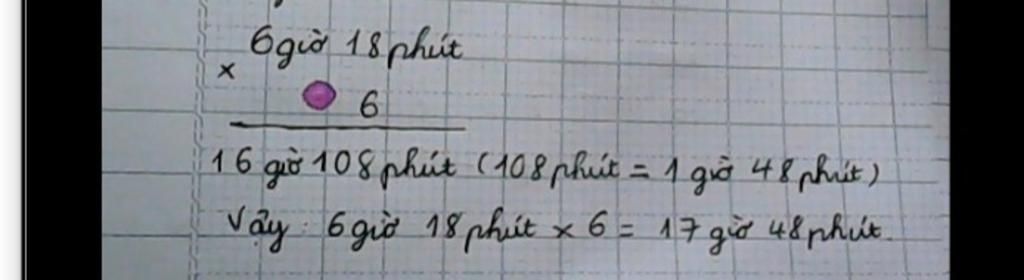 6 giờ 18 phút
×
6
16 giờ 108 phút (108 phút = 1 giờ 48 phút)
Vậy : 6 giờ 18 phút × 6 = 17 giờ 48 phút.